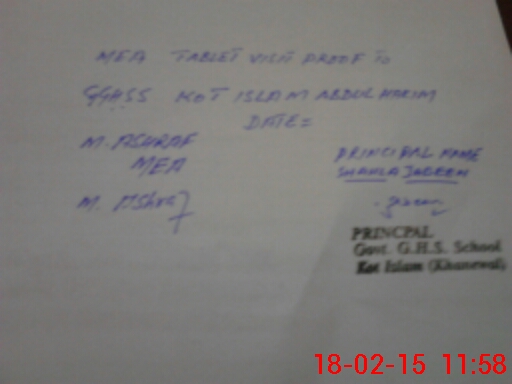 MEA TABLET VISIT PROOF TO
GGHSS KOT ISLAM ABDUL HAKIM
DATE=
M. ASHRAF
MEA
PRINCIPAL NAME
SHAHLA JABEEN
M. Ashraf
PRINCPAL
Govt. G.H.S. School
Kot Islam (Khanewal)
18-02-15 11:58